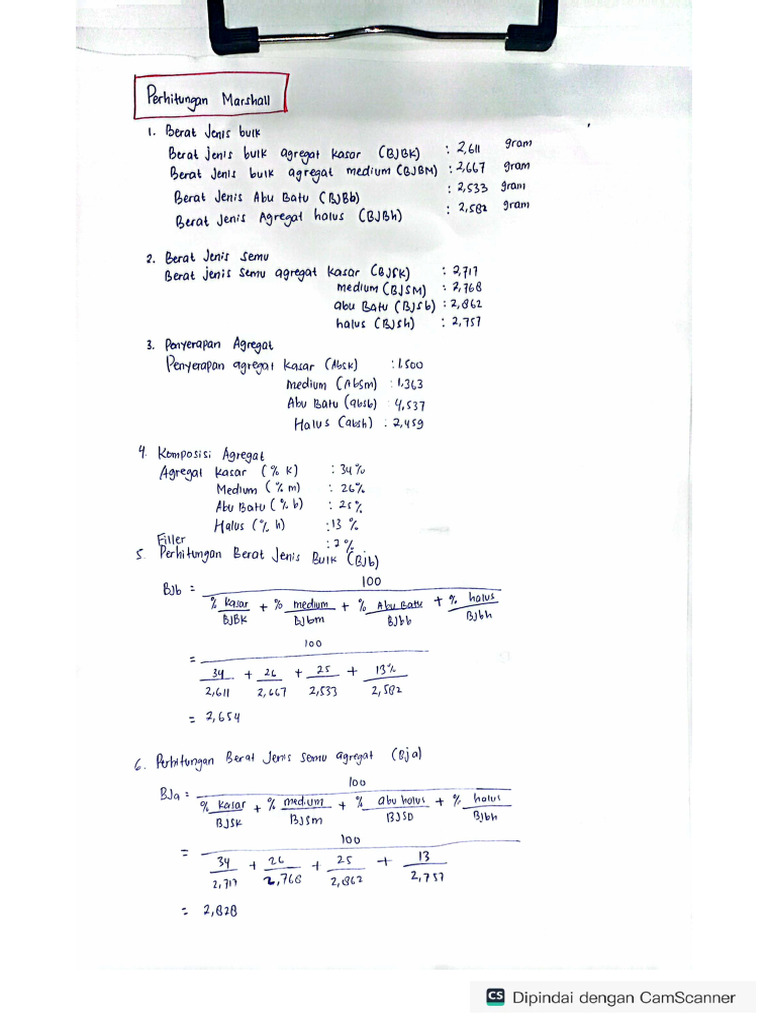 Perhitungan Marshall
1. Berat Jenis bulk
Berat jenis bulk agregat kasar (BJBK) : 2,611 gram
Berat Jenis bulk agregat medium (BJBM) : 2,667 gram
Berat Jenis Abu Batu (BJBb) : 2,533 gram
Berat Jenis Agregat halus (BJBh) : 2,582 gram
2. Berat Jenis Semu
Berat jenis semu agregat kasar (BJSK) : 2,717
medium (BJSM) : 2,768
abu Batu (BJSb) : 2,862
halus (BJSh) : 2,757
3. Penyerapan Agregat
Penyerapan agregat kasar (AbsK) : 1.500
Medium (Absm) : 1,363
Abu Batu (absb) : 4,537
Halus (absh) : 2,459
4. Komposisi Agregat
Agregat kasar (% K) : 34%
Medium (% m) : 26%
Abu Batu (% b) : 25%
Halus (% h) : 13 %
Filler : 2 %
5. Perhitungan Berat Jenis Bulk (Bjb)
BJb = 100
% kasar + % medium + % Abu Batu + % halus
BJBK BJbm BJbb BJbh
= 100
34 + 26 + 25 + 13%
2,611 2,667 2,533 2,582
= 2,654
6. Perhitungan Berat Jenis Semu agregat (Bja)
BJa = 100
% kasar + % medium + % abu halus + % halus
BJSK BJSm BJSD BJbh
= 100
34 + 26 + 25 + 13
2,717 2,768 2,862 2,757
= 2,828
CS Dipindai dengan CamScanner